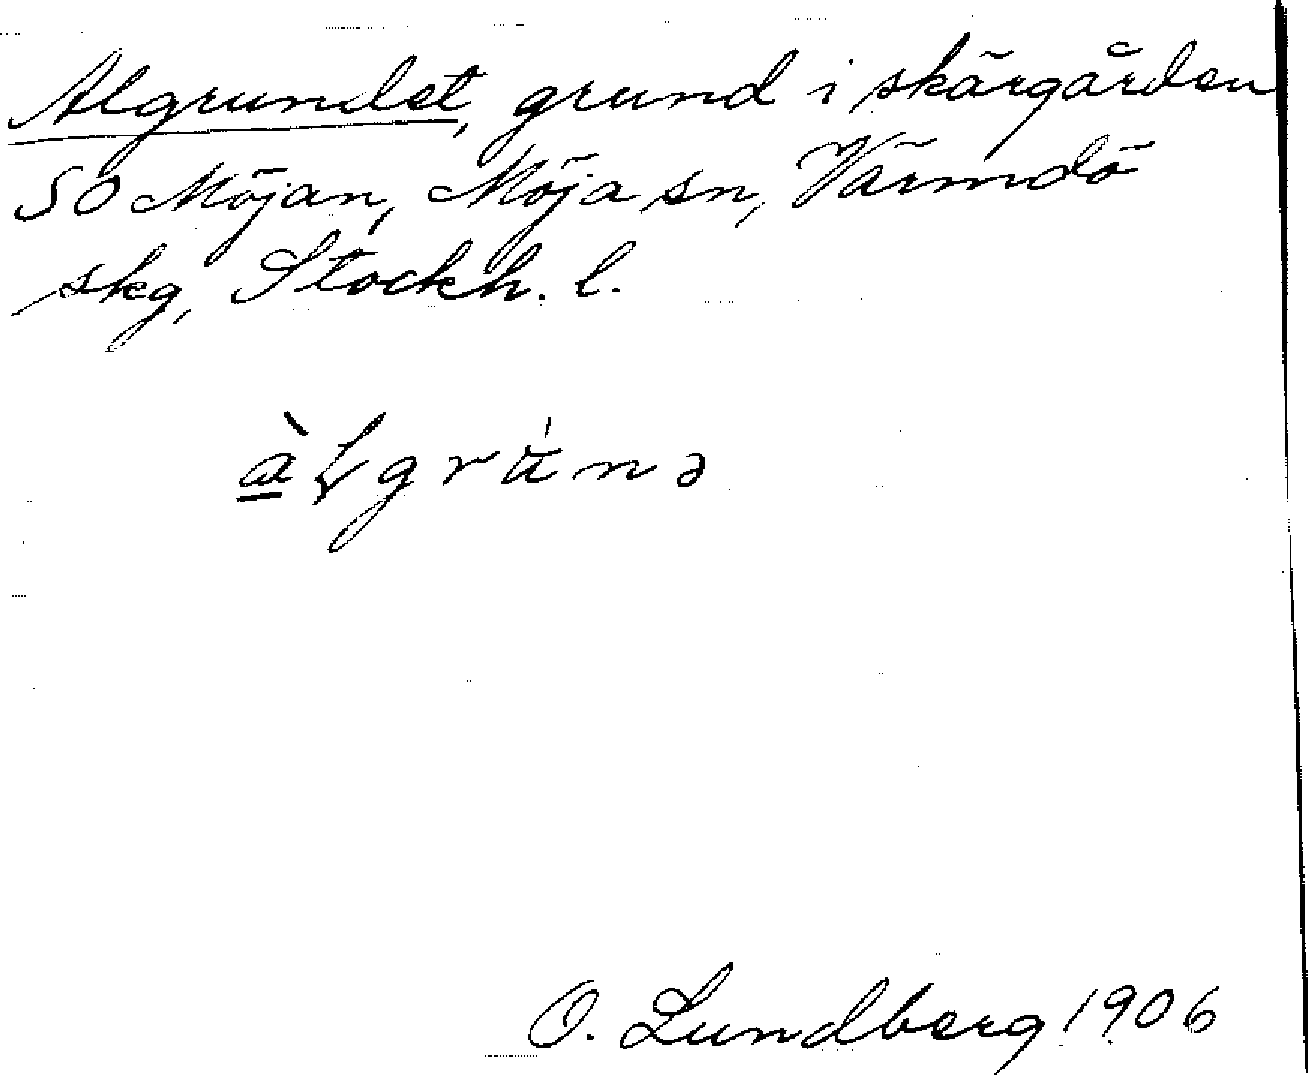 Algrundet, grund i skärgården
SO Möjan, Möja sn, Värmdö
skg, Stockh. l.
O. Lundberg 1906